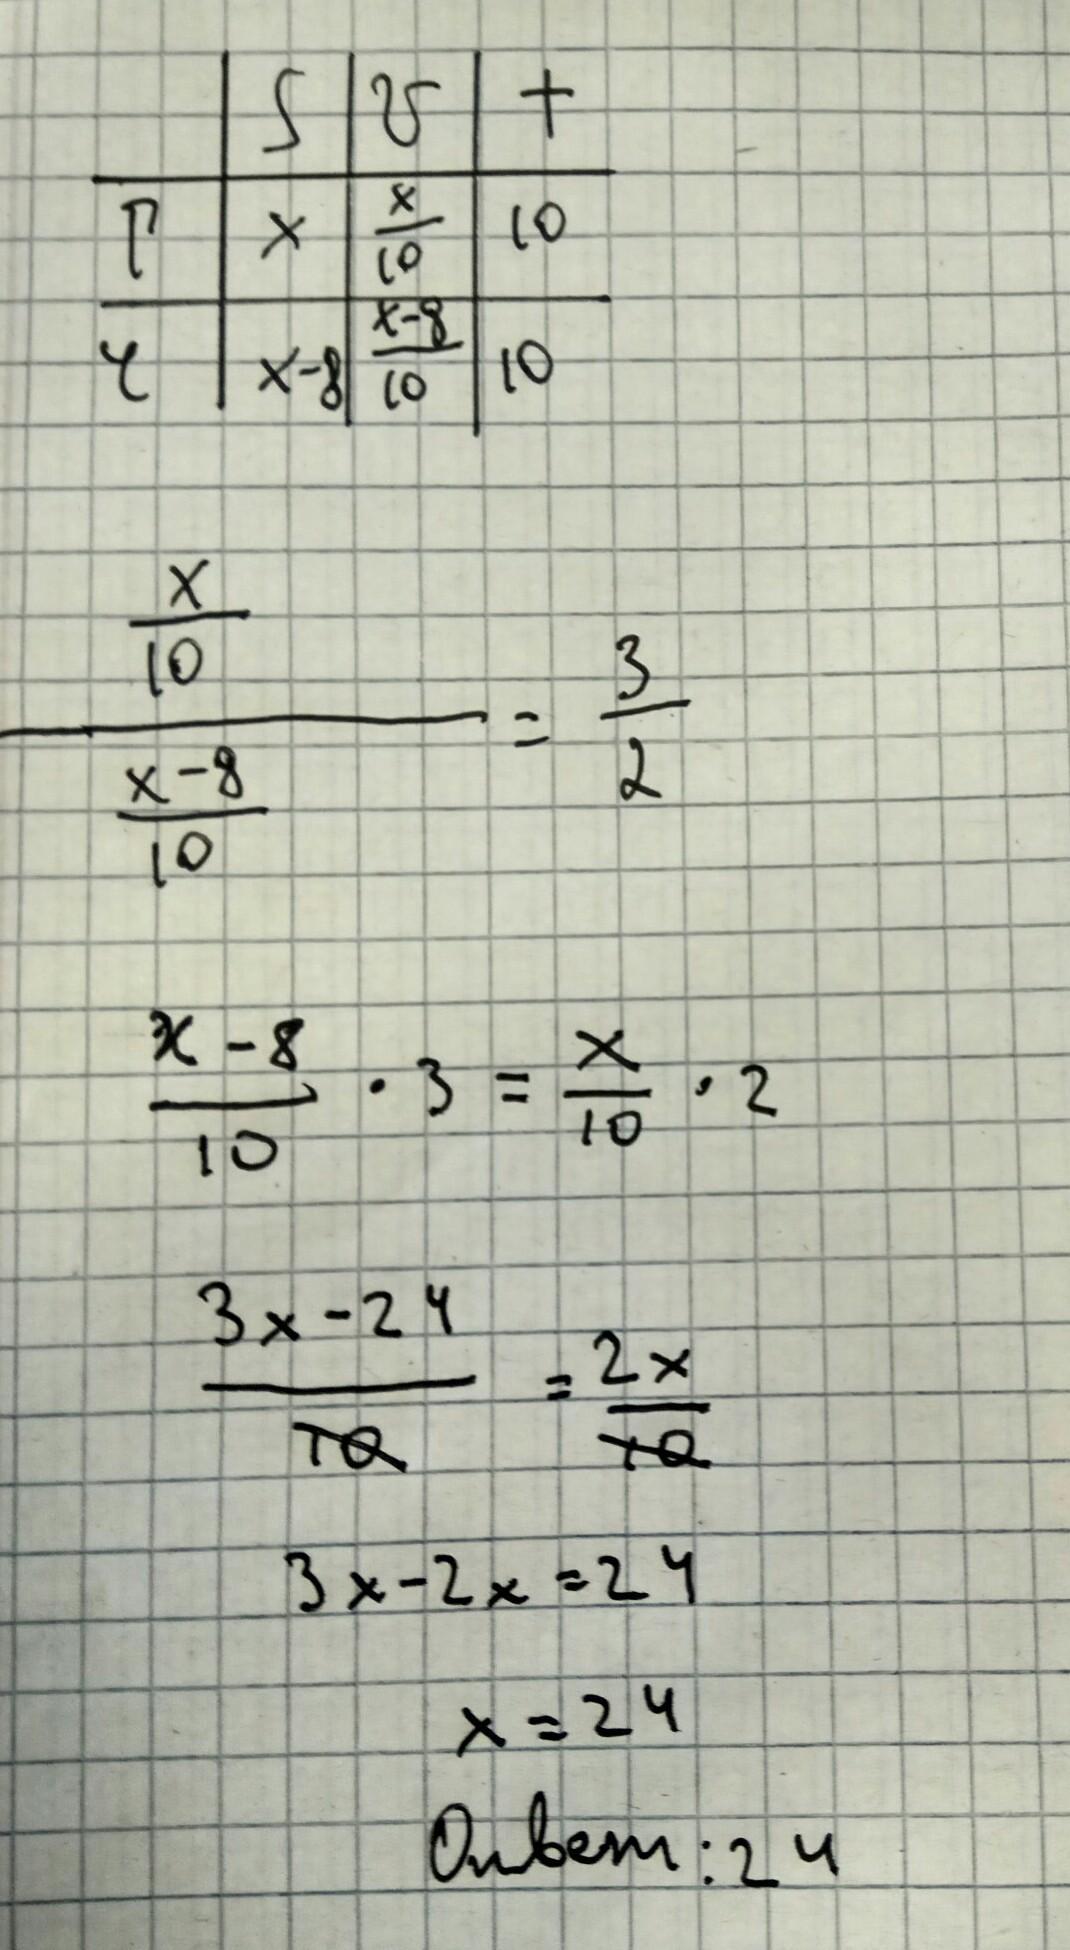 S υ t
П x x/10 10
Ч x-8 x-8/10 10
x
10
x-8
10
= 3/2
x-8/10 · 3 = x/10 · 2
3x-24/10 = 2x/10
3x-2x=24
x=24
Ответ: 24